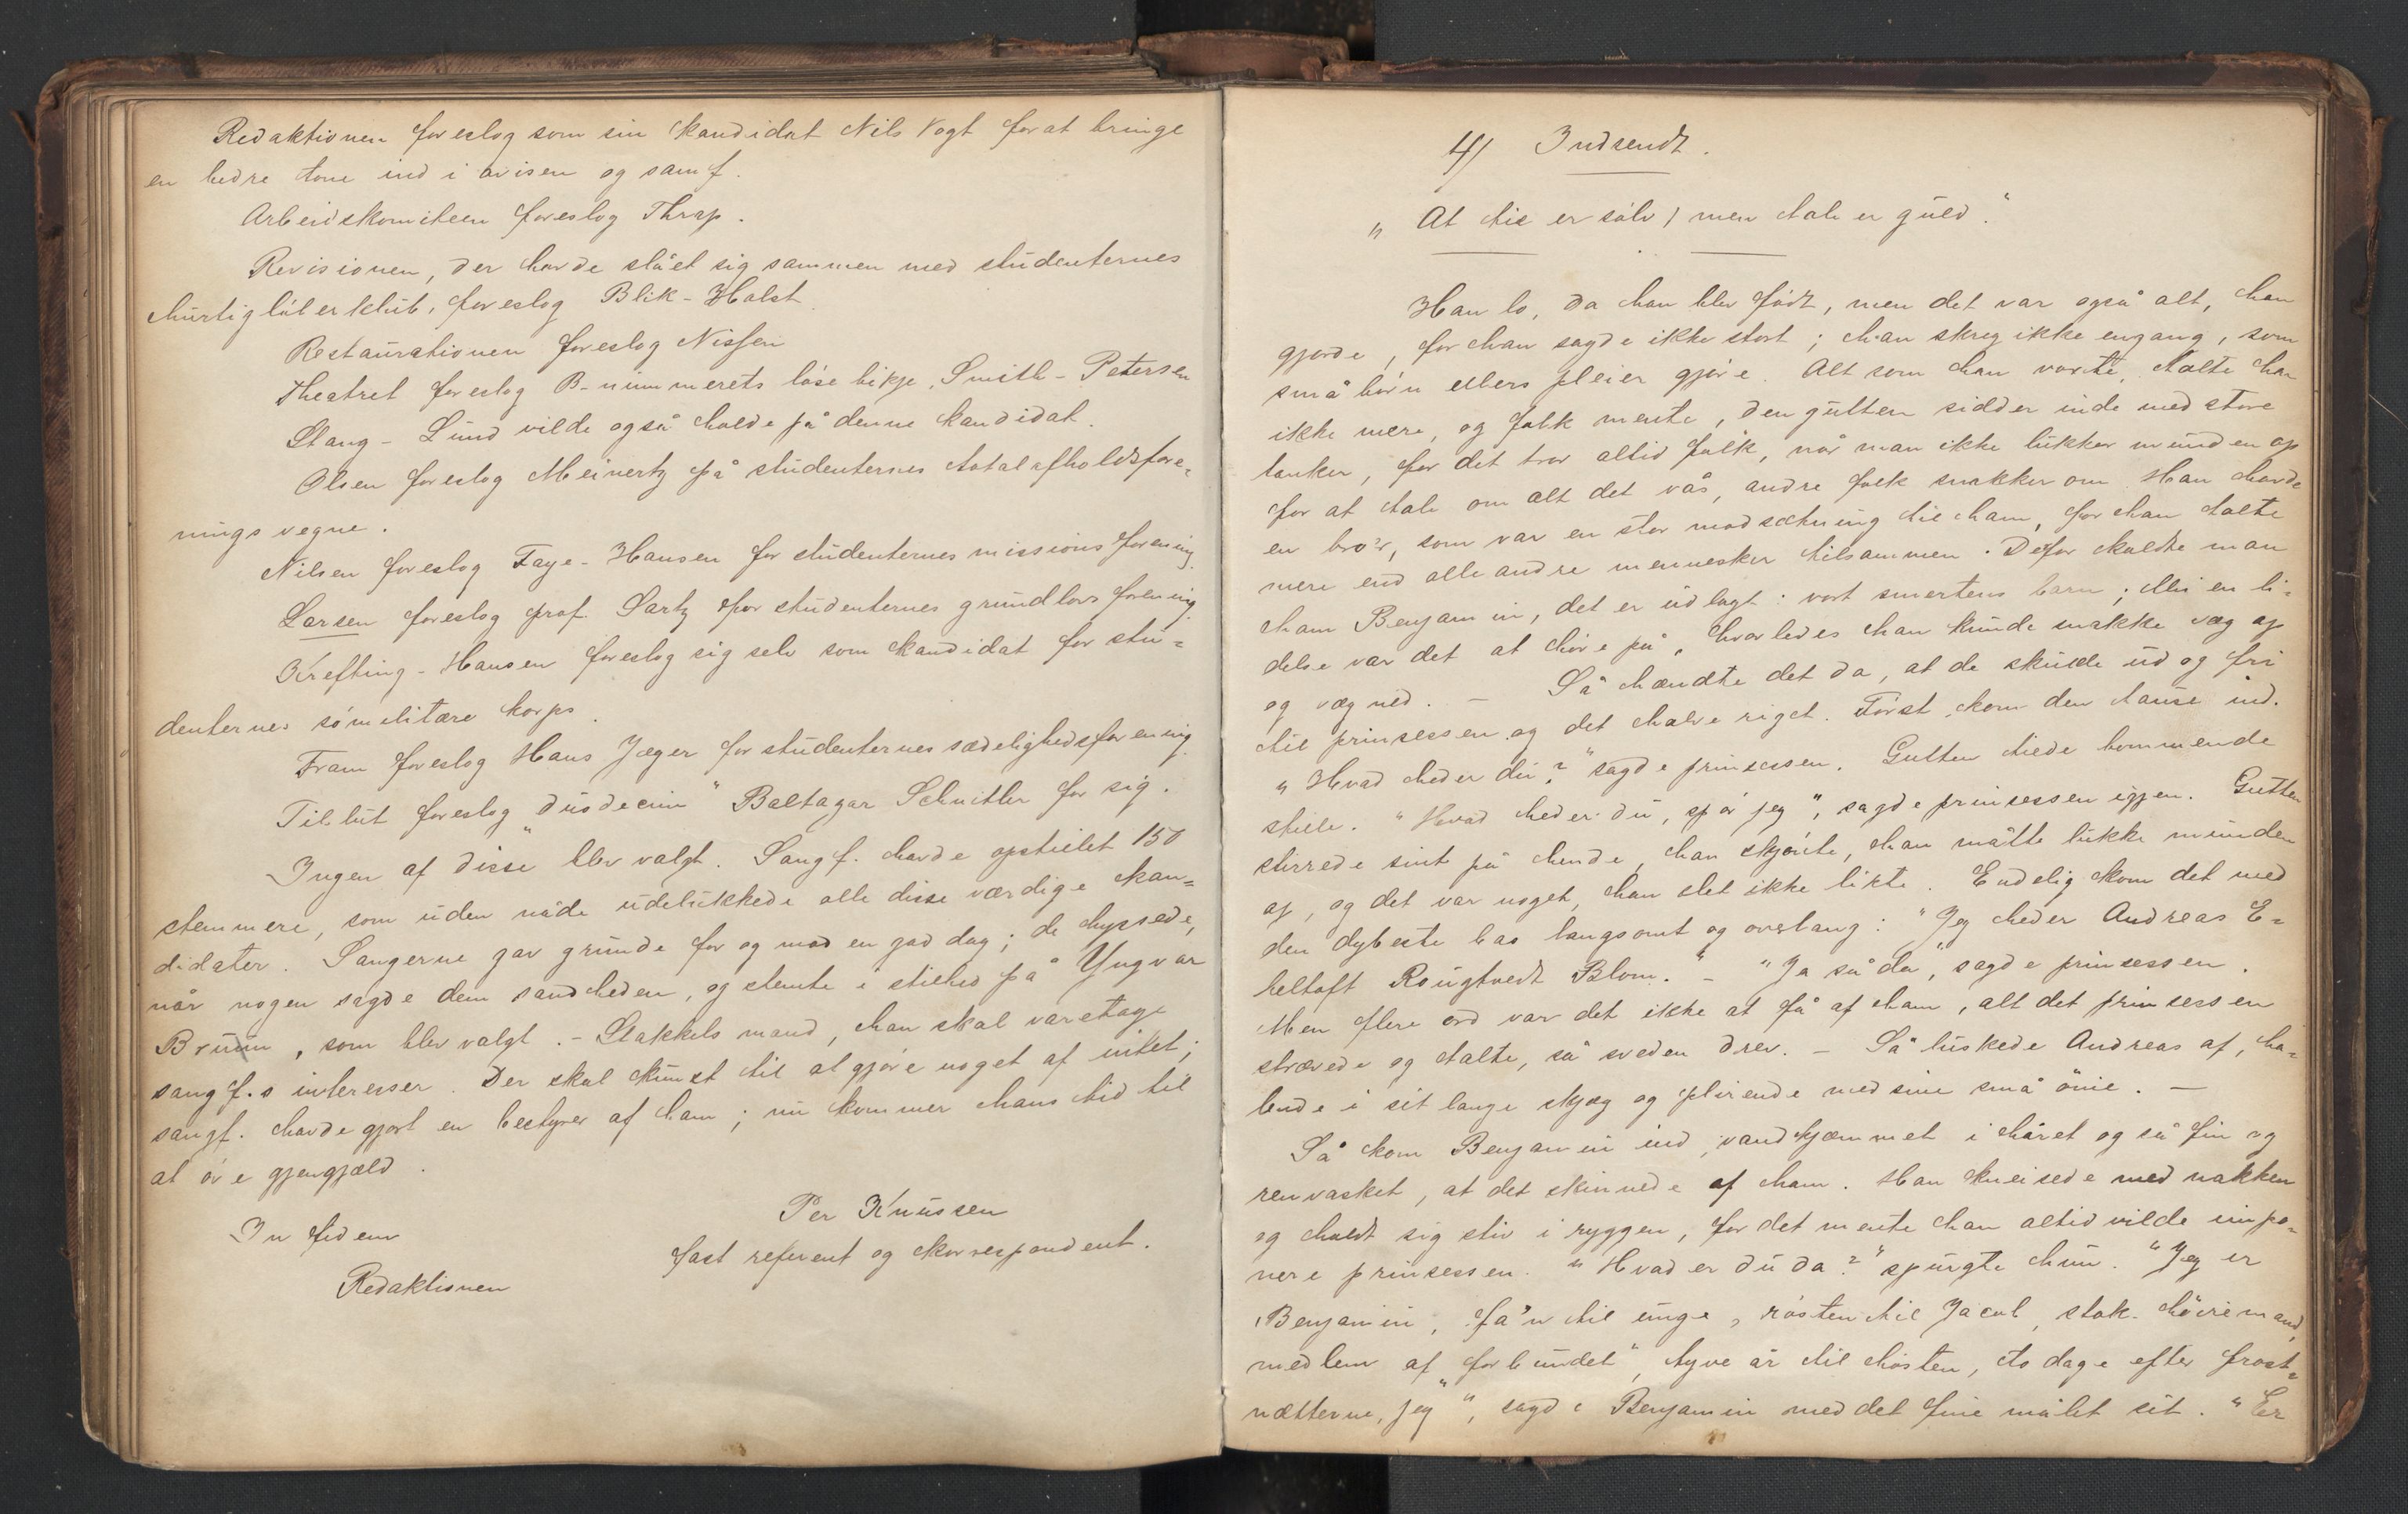 Redaktionen foreslog som sin kandidat Nils Vogt for at bringe
en bedre tone ind i avisen og samf.
Arbeidskomiteen foreslog Thrap.
Revisionen, der havde slået sig sammen med studenternes
hurtigløberklub, foreslog Blik-Holst
Restaurationen foreslog Nissen
Theatret foreslog B-nummerets løse bikje, Smith-Petersen
Stang-Lund vilde også holde på denne kandidat.
Olsen foreslog Meinertz på studenternes totalafholdsfore-
nings vegne.
Nilsen foreslog Faye-Hansen for studenternes missionsforening.
Larsen foreslog prof. Sartz for studenternes grundlovsforening
Krefting-Hansen foreslog sig selv som kandidat for stu-
denternes sømilitære korps.
Fram foreslog Hans Jæger for studenternes sædelighedsforening.
Tilslut foreslog "duodecim" Baltazar Schnitler for sig.
Ingen af disse blev valgt. Sangf. havde opstillet 150
stemmere, som uden nåde udelukkede alle disse værdige kan-
didater. Sangerne gav grunde for og mod en god dag; de hyssede,
når nogen sagde dem sandheden, og stemte i stilhed på Yngvar
Bruun, som blev valgt. - Stakkels mand, han skal varetage
sangf.s interesser. Der skal kunst til at gjøre noget af intet;
sangf. havde gjort en bestyrer af ham; nu kommer hans tid til
at øve gjengjæld.
Per Knussen
In fidem
fast referent og korrespondent.
Redaktionen
4) Indsendt.
"At tie er sølv, men tale er guld."
Han lo, da han blev født, men det var også alt, han
gjorde, for han sagde ikke stort; han skreg ikke engang, som
små børn ellers pleier gjøre. Alt som han vokste, talte han
ikke mere, og folk mente, den gutten sidder inde med store
tanker, for det tror altid folk, når man ikke lukker munden op
for at tale om alt det vås, andre folk snakker om. Han havde
en bro'r, som var en stor modsætning til ham, for han talte
mere end alle andre mennesker tilsammen. Defor kaldte man
ham Benjamin, det er udlagt: vort smertens barn; thi en li-
delse var det at høre på, hvorledes han kunde snakke væg op
og væg ned. - Så hændte det da, at de skulde ud og fri
til prinsessen og det halve riget. Først kom den tause ind.
"Hvad heder du?" sagde prinsessen. Gutten tiede bommende
stille. "Hvad heder du, spør jeg", sagde prinsessen igjen. Gutten
stirrede sint på hende, han skjønte, han måtte lukke munden
op, og det var noget, han slet ikke likte. Endelig kom det med
den dybeste bas langsomt og overlang: "Jeg heder Andreas E-
beltoft Rougtvedt Blom." - "Ja så da", sagde prinsessen.
Men flere ord var det ikke at få af ham, alt det prinsessen
strævede og talte, så sveden drev. - Så luskede Andreas af, ha-
lende i sit lange skjæg og plirende med sine små öine. -
Så kom Benjamin ind, vandkjæmmet i håret og så fin og
renvasket, at det skinnede af ham. Han kneisede med nakken
og holdt sig stiv i ryggen, for det mente han altid vilde impo-
nere prinsessen. "Hvad er du da?" spurgte hun. "Jeg er
Benjamin, fa'n til unge, røsten til Jacob, stok-høiremand,
medlem af "forbundet", tyve år til høsten, to dage efter frost-
nætterne, jeg", sagde Benjamin med det fine målet sit. "Er